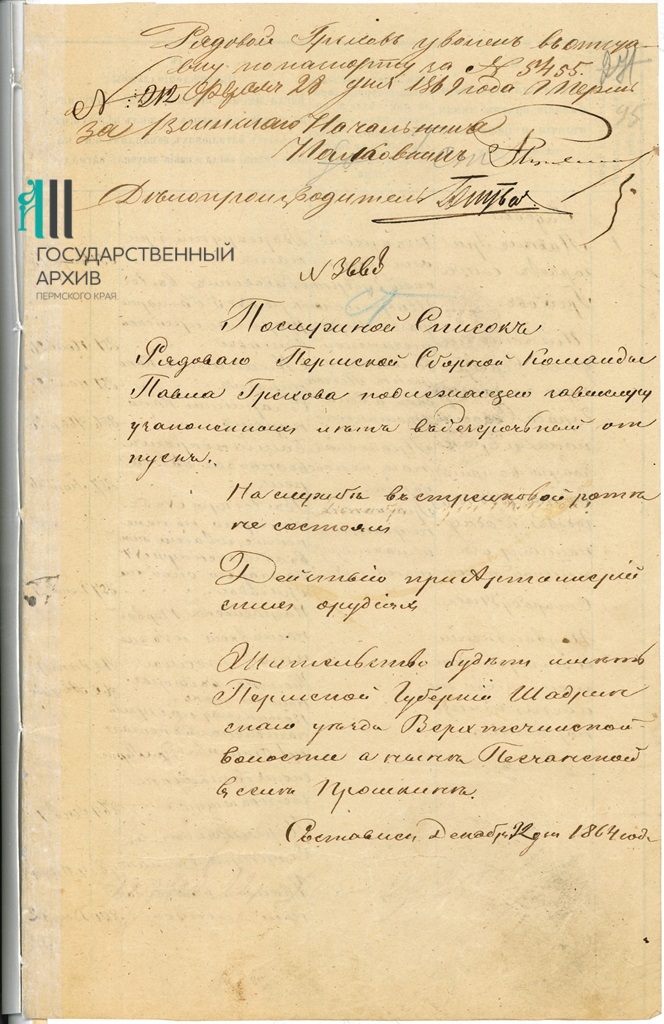 Рядовой Грехов уволен в отпуск
ему по паспорту за № 5455.
№: 212 Февраля 28 дня 1869 года г. Пермь
95
За Воинского Начальника
Полковникъ
Дѣлопроизводитель
ГОСУДАРСТВЕННЫЙ
АРХИВ
ПЕРМСКОГО КРАЯ
N 3668
Послужной Списокъ
Рядоваго Пермской Сборной Команды
Павла Грехова подлежащего
узаконенныхъ лѣтъ в безсрочный от
пускъ.
На службѣ въ стрелковой ротѣ
не состоялъ
Действию при Артиллерій
скихъ орудіяхъ
Жительство будетъ иметь
Пермской Губерніи Шадрин
скаго уѣзда Верхтеченской
волости а нынѣ Песчанской
в селѣ
Составленъ Декабря 12 дня 1864 года